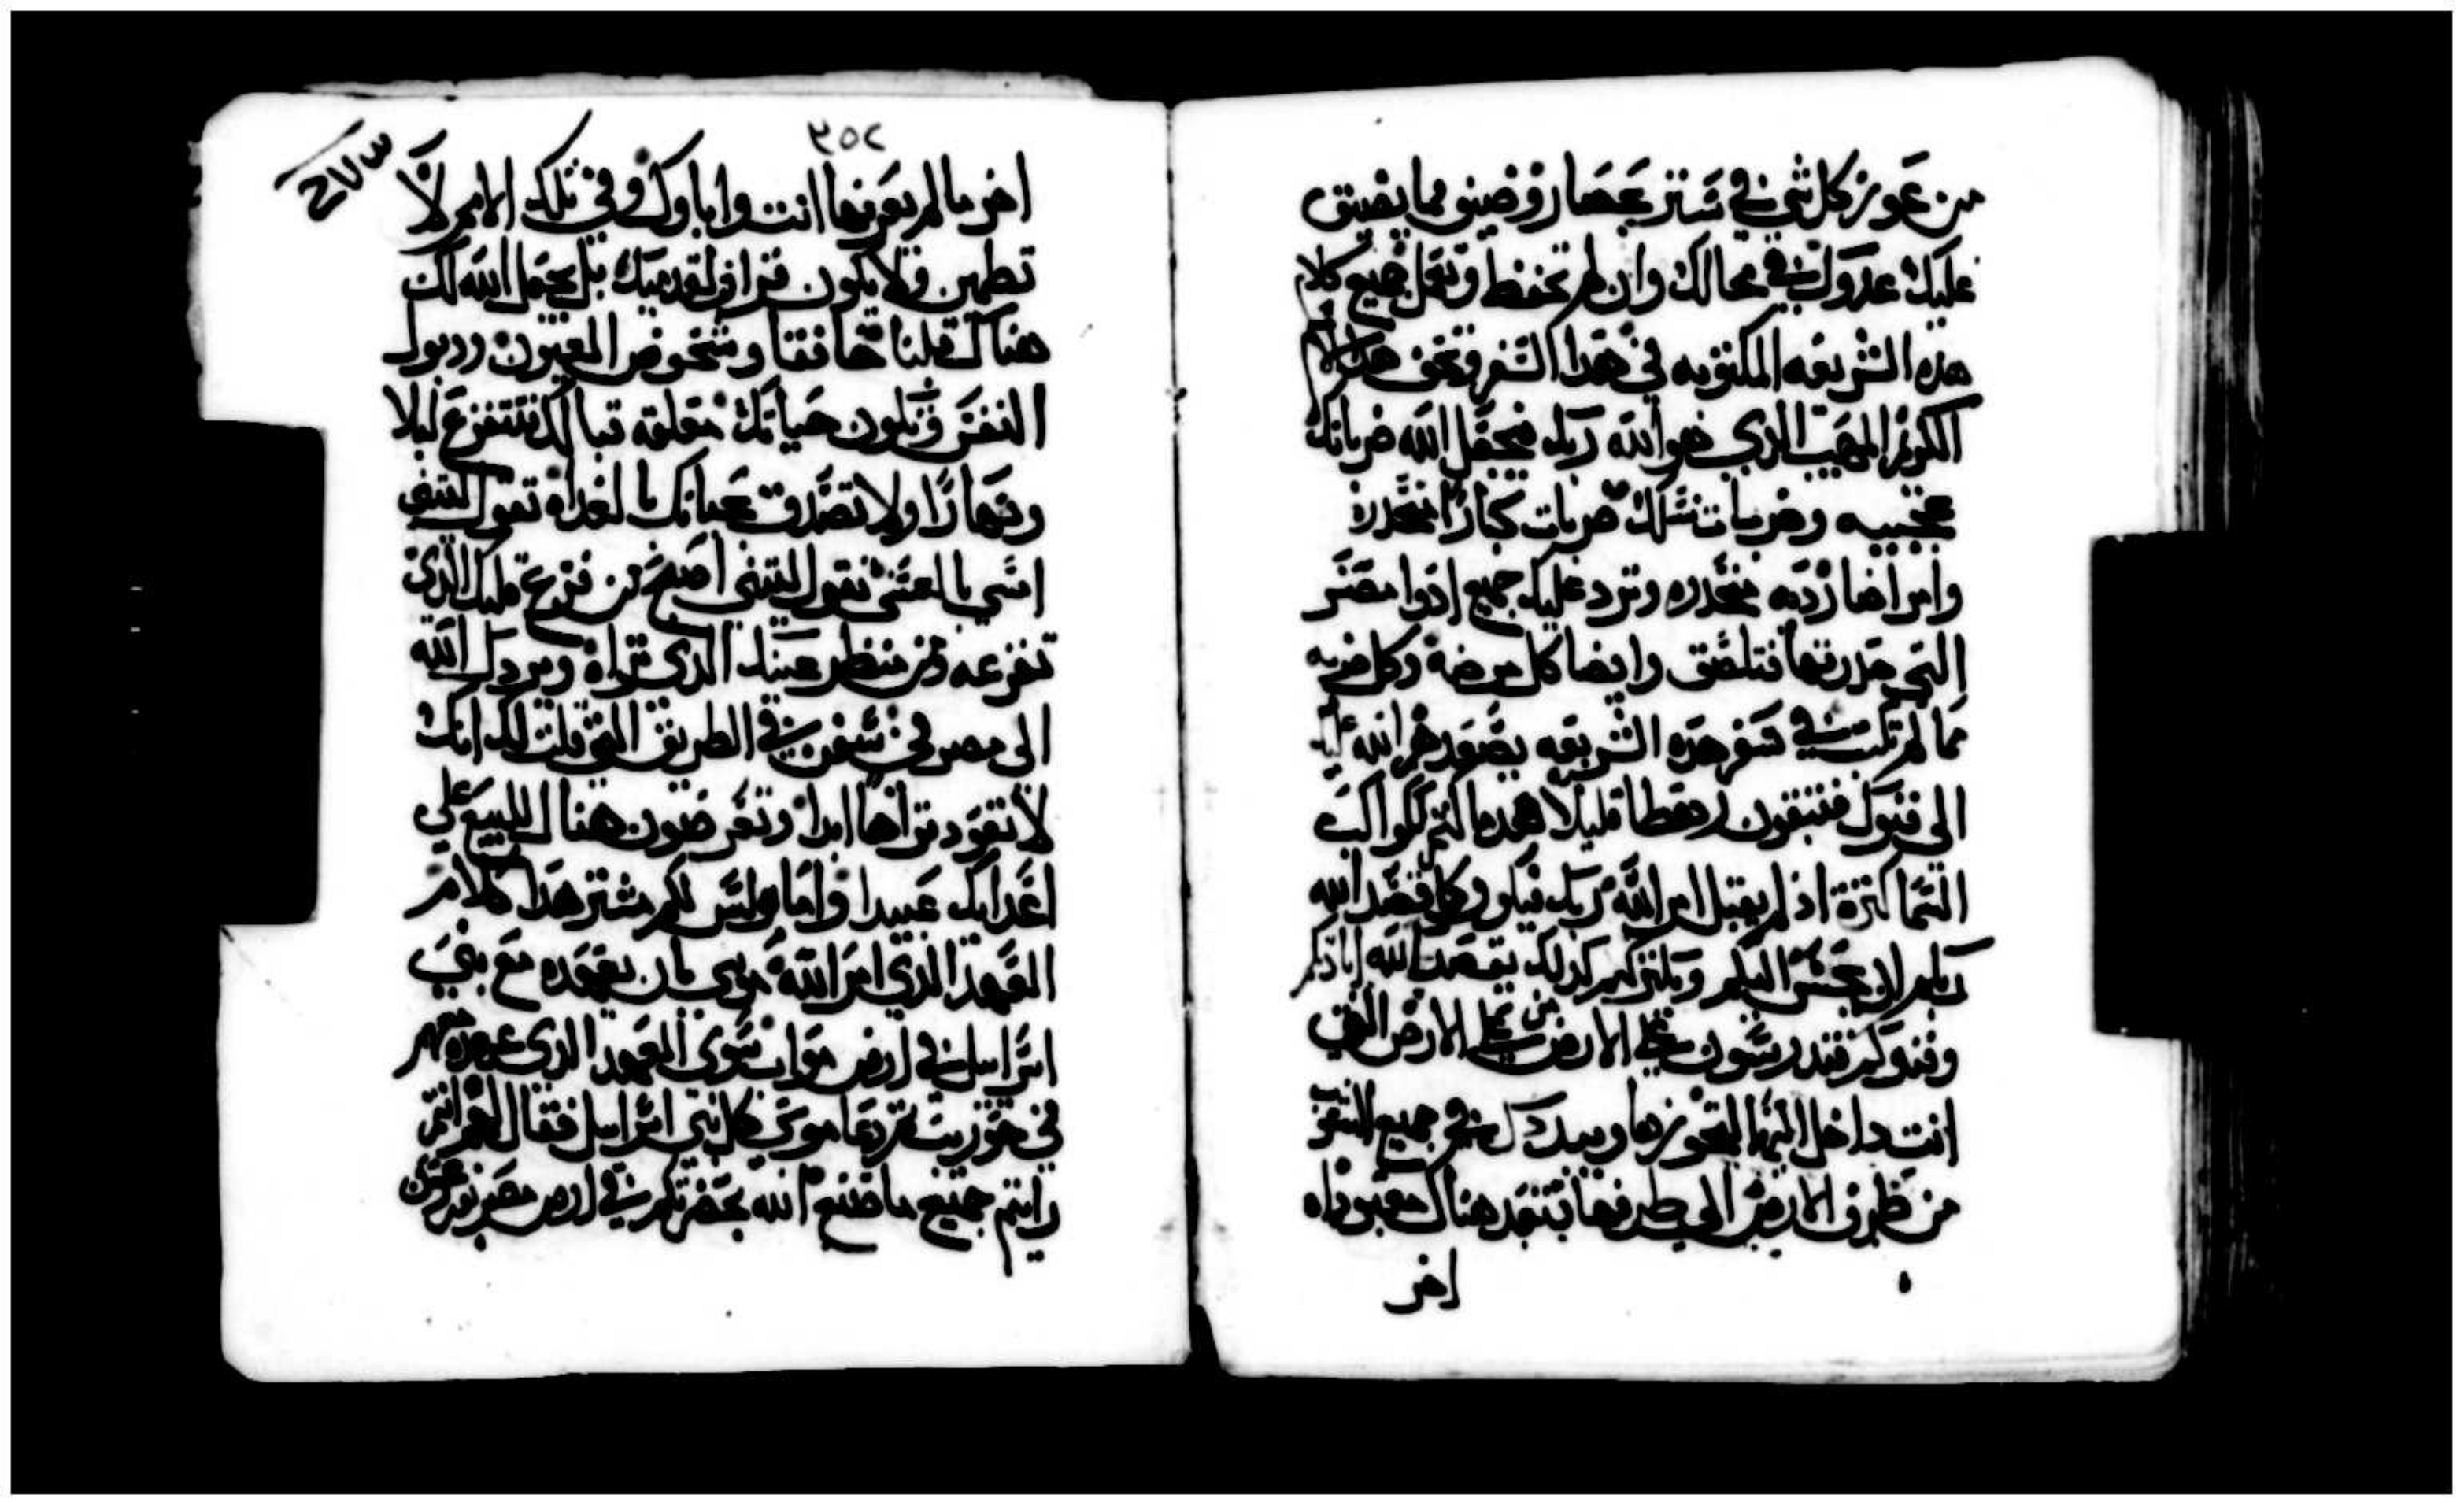 من عوز كل شي في ستر بحصار وضيق مما يضيق
عليك عدوك في محالك وان لم تحفظ وتعمل جميع كلام
هذه الشريعه المكتوبه في هدا السفر وتخف هدا الاسم
الكريم المهيب الدي هو الله ربك فيجعل الله ضرباتك
عجيبيه وضربات نسلك ضربات كبارا متجدره
وامراضا رديه متجدره وترد عليك جميع ادوا مصر
التي حدرتها فتلصق وايضا كل مرضة وكل ضربه
مما لم تكتب في سفر هده الشريعه يصعدهم الله عليك
الى فنوك فتبقون رهطا قليلا بعدما كنتم ككواكب
السما كثرة اذ لم يقبل امر الله ربك فيكون كما قصد الله
ربكم لان يحسن اليكم ويكثركم كدلك يقصد الله ابادتكم
وفنوكم فتدرسون من على الارض التي
انت داخل اليها لتحوزها ويبددك في جميع الشعوب
من طرف الارض الى طرفها فتعبد هناك معبوداه
اخر
٣٥٢
اخر ما لم يعرفها انت واباوك وفي تلك الامم لا
تطمين ولا يكون قرار لقدميك بل يجعل الله لك
هناك قلبا خافقا وشخوص العيون ودبول
النفس وتكون حياتك معلقه قبالك فتفزع ليلا
ونهارا ولا تصدق بحياتك بالغداه تقول ليتني
امسي بالعشي تقول ليتني اصبح من فزع قلبك الدي
تفزعه ومن منظر عينيك الدي تراه ويردك الله
الى مصر في سفن في الطريق التي قلت لك انك
لا تعود تراها ابدا وتعرضون هناك للبيع على
اعدايك عبيدا واما وليس لكم مشتر هدا كلام
العهد الدي امر الله موسى بان يعهده مع بني
اسراييل في ارض مواب سوى العهد الدي عهده معهم
في حوريب ثم دعا موسى كل بني اسراييل فقال لهم انتم
رايتم جميع ما صنع الله بحضرتكم في ارض مصر بفرعون